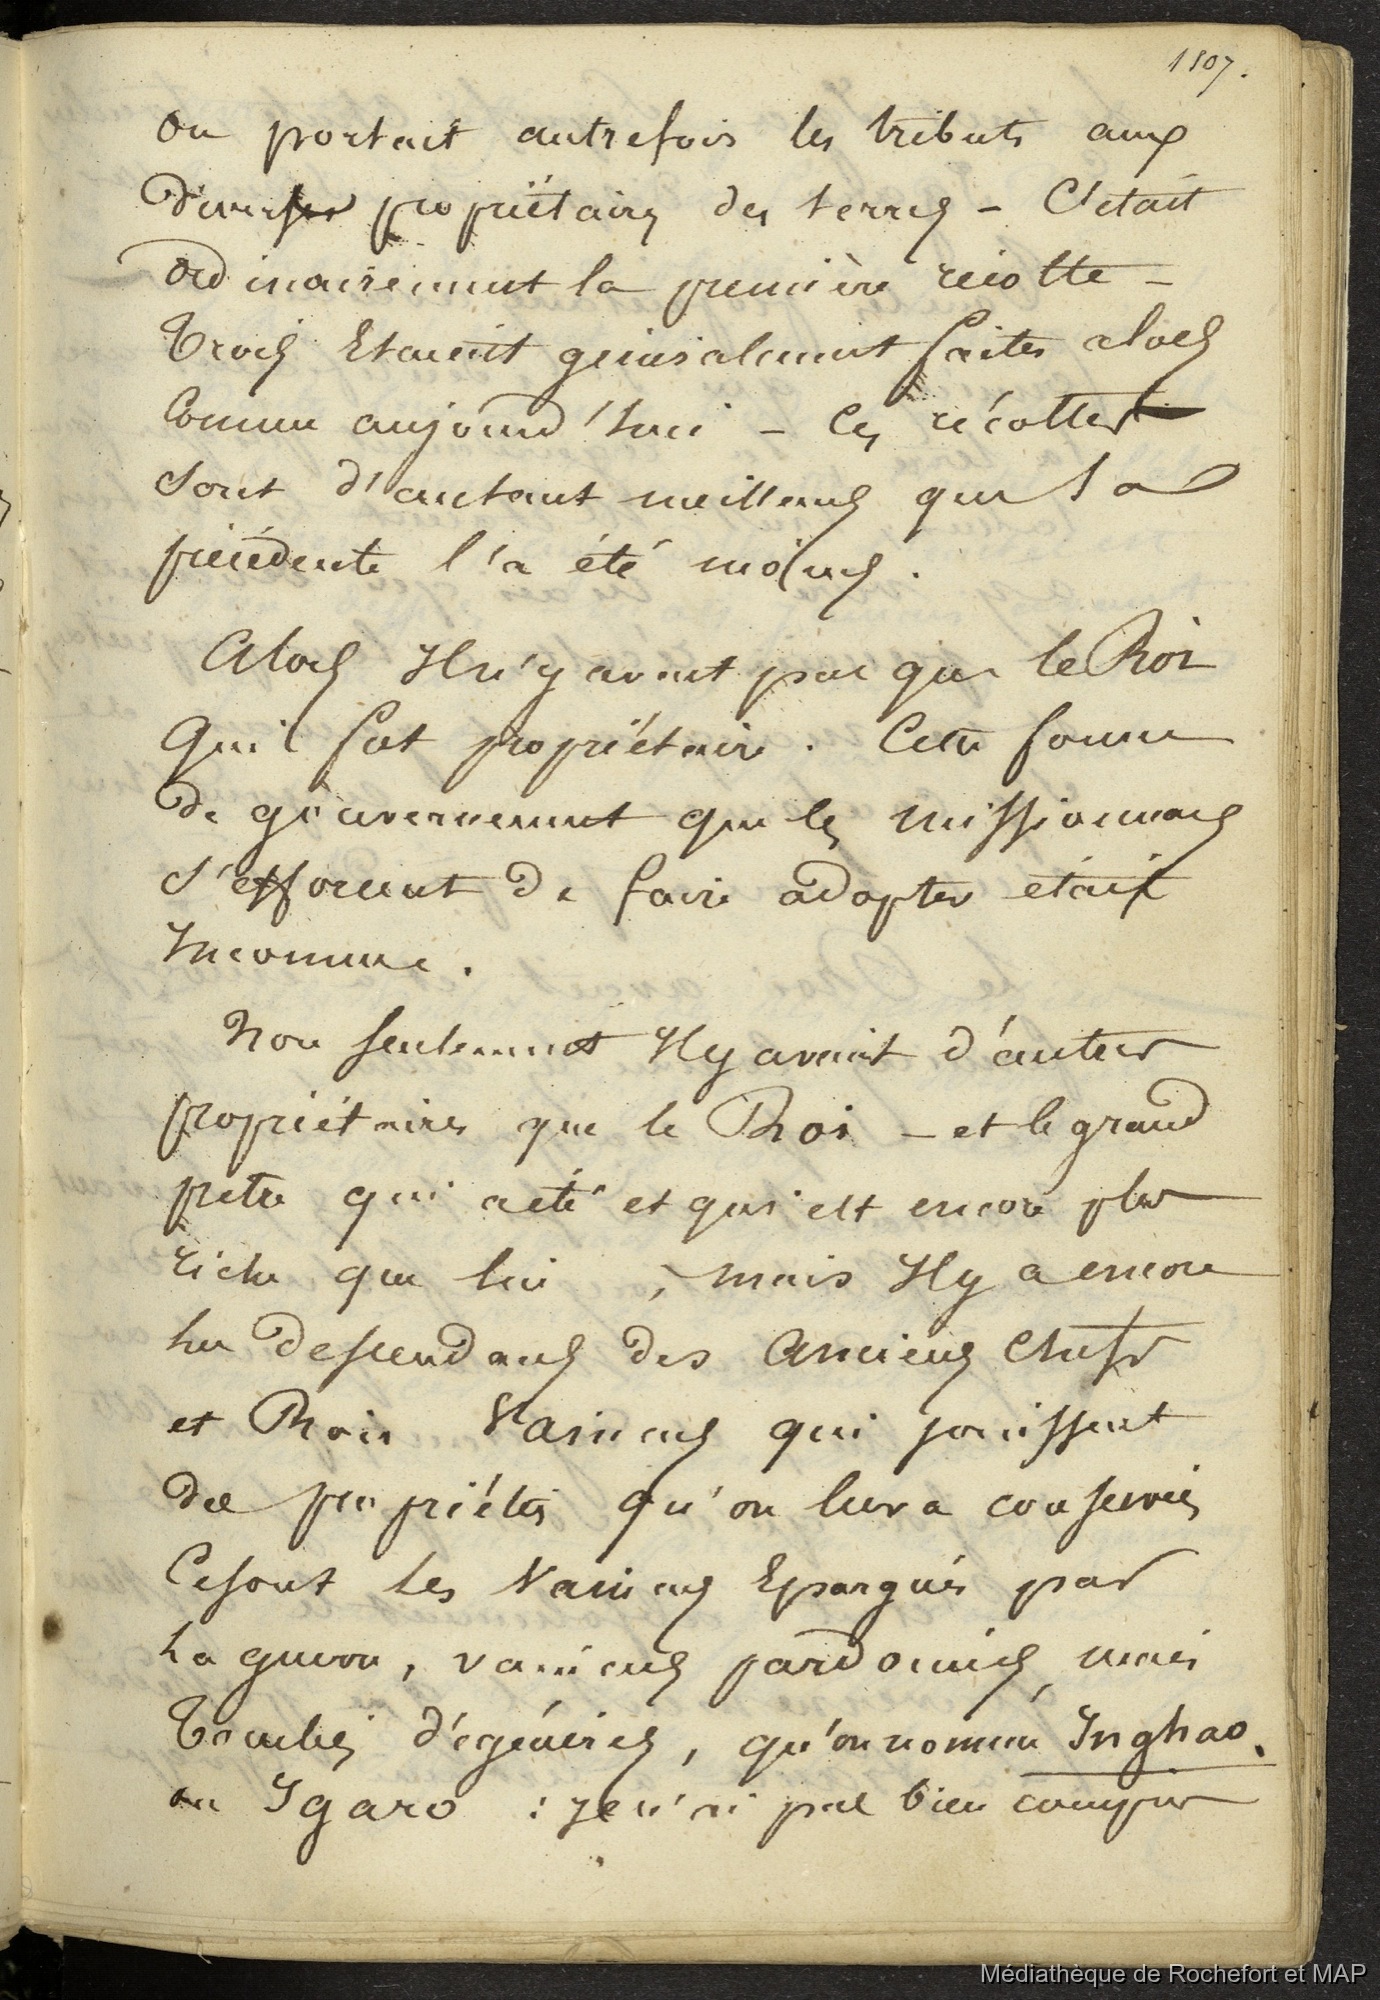 1807.
on portait autrefois les tributs aux
divers propriétaires des terres – C'etait
ordinairement la première récolte –
Trois Etaient généralement faites alors
Comme aujourd'hui – les récoltes
sont d'autant meilleures que la
précédente l'a été moins.
Alors Il n'y avait pas que le Roi
qui fut propriétaire. Cette forme
de gouvernement que les missionnaires
s'efforcent de faire adopter etait
Inconnue.
Non seulement Il y avait d'autres
propriétaires que le Roi – et le grand
pretre qui a été et qui est encore plus
riche que lui, mais Il y a encore
les descendans des Anciens Chefs
et Rois Vaincus qui jouissent
des propriétés qu'on leur a conservées
Ce sont les Vaincus Epargnés par
la guerre, vaincus pardonnés, mais
Tombés dégénérés, qu'on nomme Inghao.
ou Igaro : je n'ai pas bien compris
Médiathèque de Rochefort et MAP